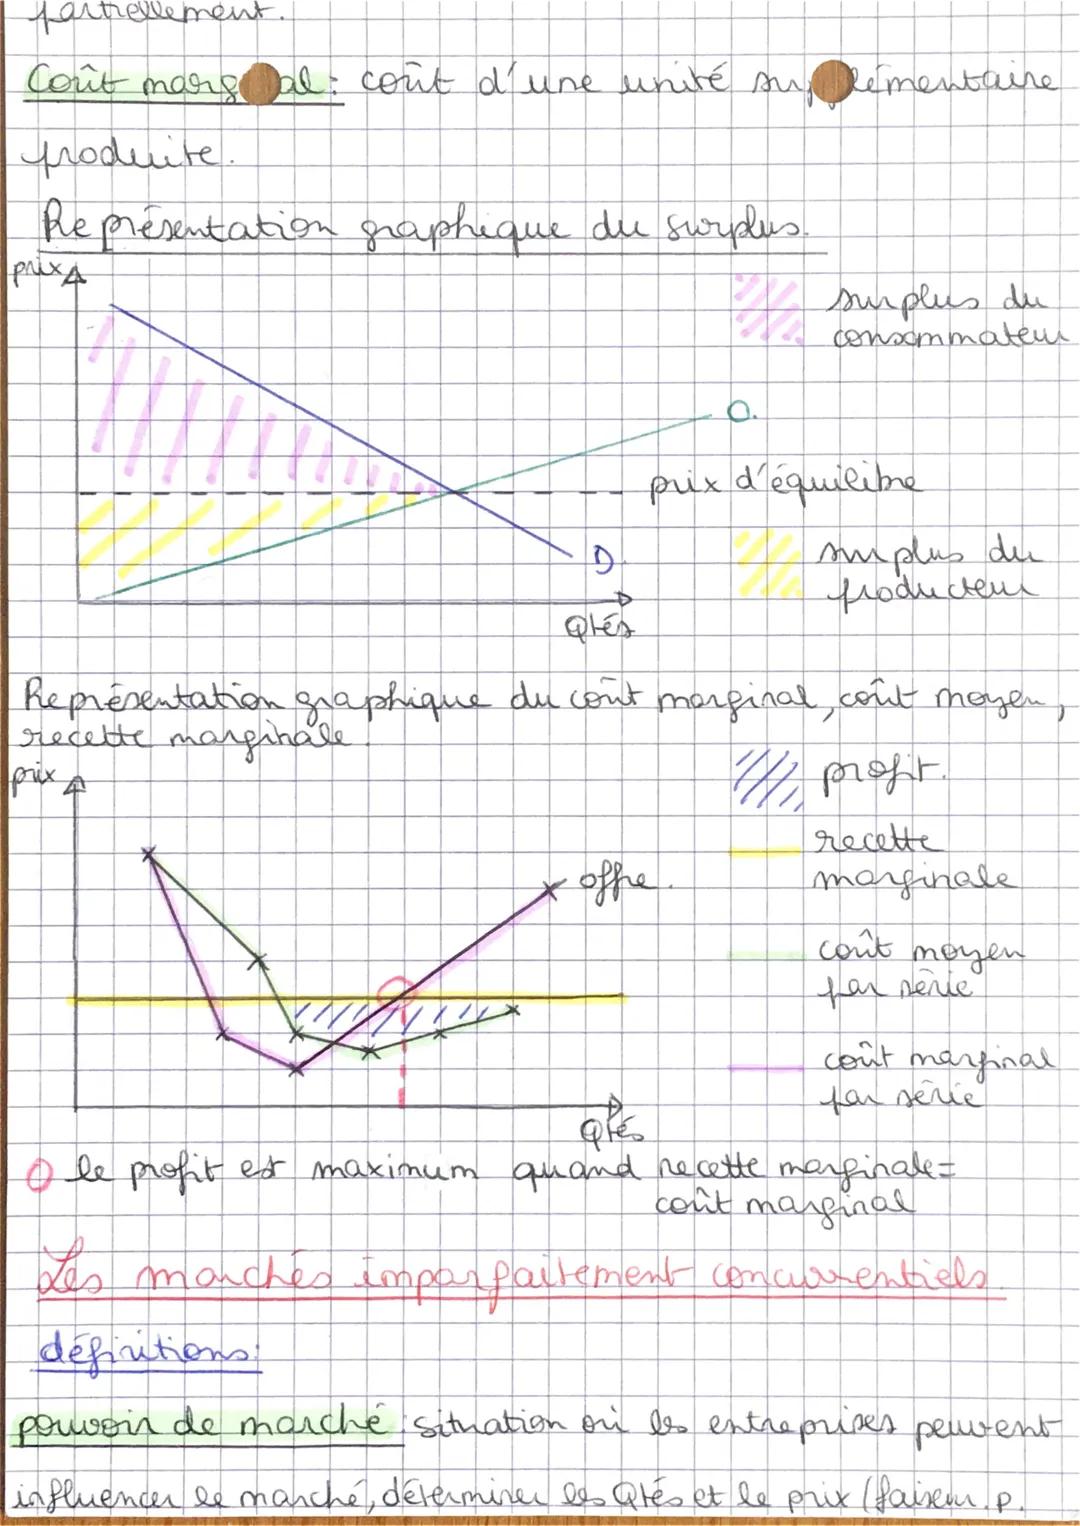 partiellement.
Coût marg al : coût d'une unité sup lémentaire
produite.
Représentation graphique du surplus.
prix
surplus du
consommateur
O.
prix d'équilibre
surplus du
producteur
D.
Qtés
Représentation graphique du coût marginal, coût moyen,
recette marginale.
prix
profit.
offre.
recette
marginale
coût moyen
par série
coût marginal
par série
Qtés
le profit est maximum quand recette marginale =
coût marginal
Les marchés imparfaitement concurrentiels.
définitions:
pouvoir de marché : situation où les entreprises peuvent
influencer le marché, déterminer les Qtés et le prix (faiseur. p.